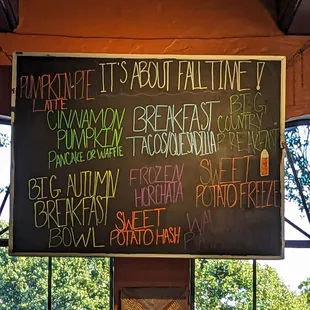 IT'S ABOUT FALL TIME!
PUMPKIN-PIE
LATTE
CINNAMON
PUMPKIN
PANCAKE OR WAFFLE
BREAKFAST
TACOS/QUESADILLA
BIG
COUNTRY
BREAKFAST
BIG AUTUMN
BREAKFAST
BOWL
FROZEN
HORCHATA
SWEET
POTATO FREEZE
SWEET
POTATO HASH